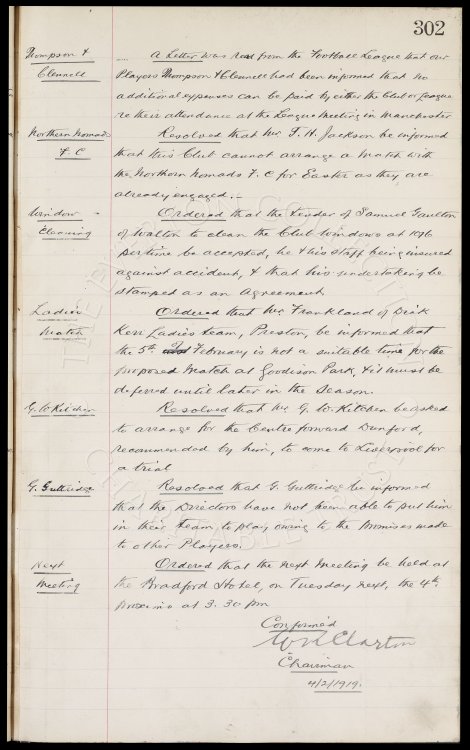 302
Thompson &
Clennell
A Letter was read from the Football League that our
Players Thompson & Clennell had been informed that no
additional expenses can be paid by either the Club or League
re their attendance at the League Meeting in Manchester
Northern Nomads
F. C
Resolved that Mr. T. H. Jackson be informed
that this Club cannot arrange a Match with
the Northern Nomads F. C for Easter as they are
already engaged.
Window
Cleaning
Ordered that the tender of Samuel Gaulton
of Walton to clean the Club Windows at 10/6
per time be accepted, he & his staff being insured
against accident, & that his undertaking be
stamped as an Agreement
Ladies
Match
Ordered that Mr Frankland of Dick
Kerr Ladies team, Preston, be informed that
the 5th February is not a suitable time for the
proposed Match at Goodison Park, & it must be
deferred until later in the Season.
G. W. Kitchen
Resolved that Mr G. W. Kitchen be asked
to arrange for the Centre forward Dunford,
recommended by him, to come to Liverpool for
a trial
G. Guttridge
Resolved that G. Guttridge be informed
that the Directors have not been able to put him
in their team to play owing to the promises made
to other Players.
Next
Meeting
Ordered that the next Meeting be held at
the Bradford Hotel, on Tuesday next, the 4th
proximo at 3.30 pm
Confirmed
W R Clayton
Chairman
4/2/1919.